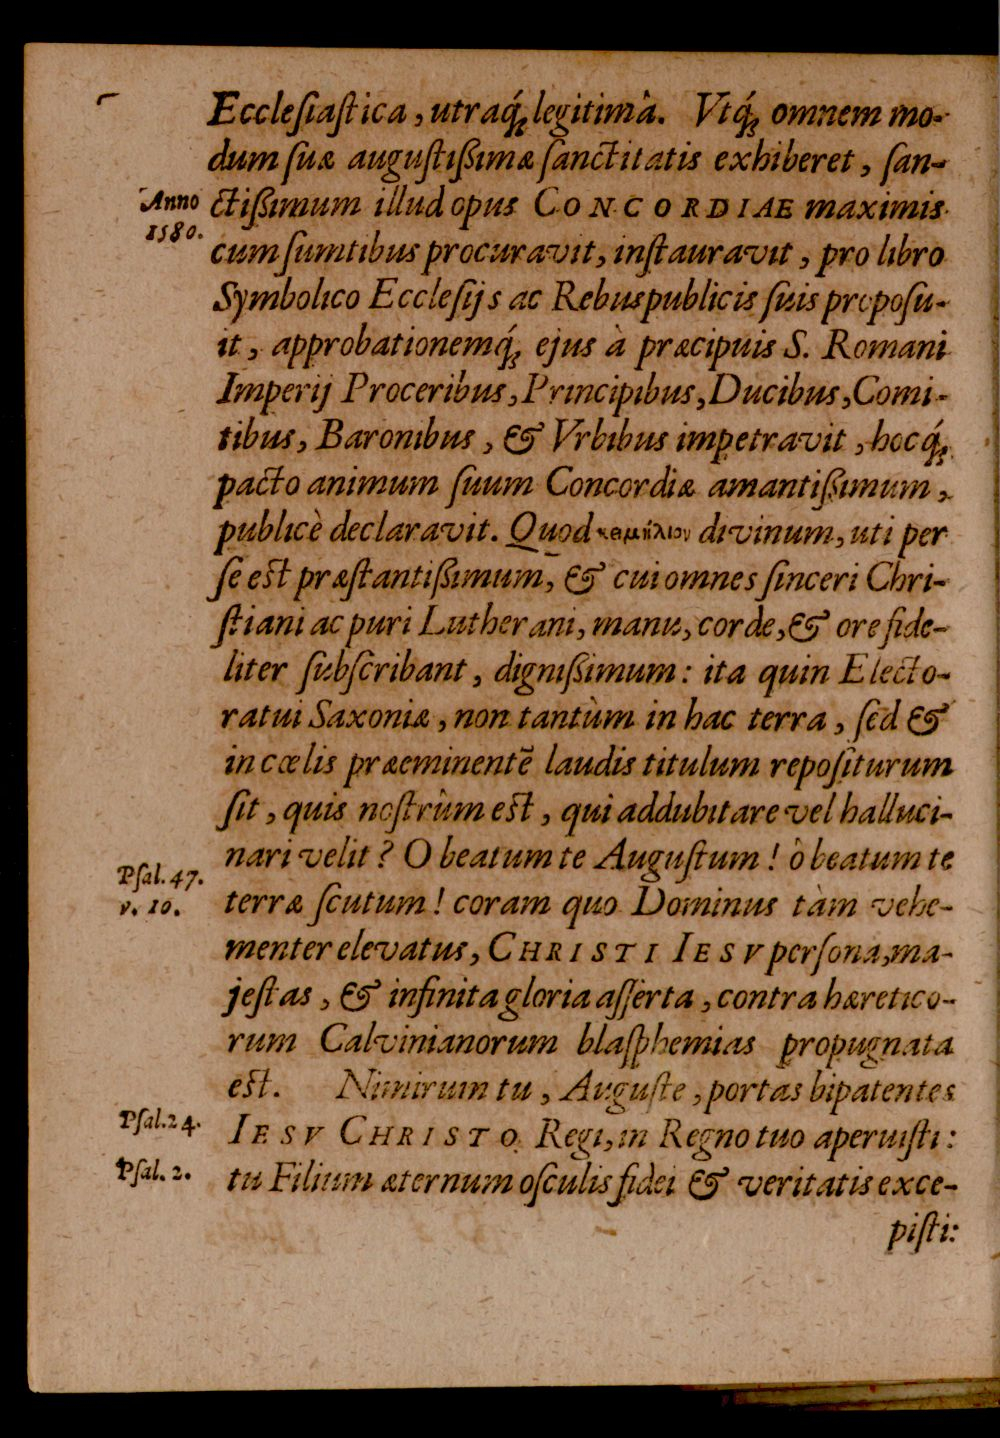 Eccleſiaſtica, utraq́; legitimâ. Vtq́; omnem mo-
dum ſuæ auguſtißimæ ſanctitatis exhiberet, ſan-
Anno
1580.
ctißimum illud opus CONCORDIAE maximis
cum ſumtibus procuravit, inſtauravit, pro libro
Symbolico Eccleſijs ac Rebuspublicis ſuis propoſu-
it, approbationemq́; ejus à præcipuis S. Romani
Imperij Proceribus, Principibus, Ducibus, Comi-
tibus, Baronibus, & Vrbibus impetravit, hocq́;
pacto animum ſuum Concordiæ amantißimum,
publicè declaravit. Quod κειμήλιον divinum, uti per
ſe eſt præſtantißimum, & cui omnes ſinceri Chri-
ſtiani ac puri Lutherani, manu, corde, & ore fide-
liter ſubſcribant, dignißimum: ita quin Electo-
ratui Saxoniæ, non tantùm in hac terra, ſed &
in cœlis præeminentē laudis titulum repoſiturum
ſit, quis noſtrûm eſt, qui addubitare vel halluci-
nari velit? O beatum te Auguſtum! ò beatum te
Pſal. 47.
v. 10.
terræ ſcutum! coram quo Dominus tàm vehe-
menter elevatus, CHRISTI IESV perſona, ma-
jeſtas, & infinita gloria aſſerta, contra hæretico-
rum Calvinianorum blaſphemias propugnata
eſt. Nimirum tu, Auguſte, portas bipatentes
Pſal. 24.
IESV CHRISTO Regi, in Regno tuo aperuiſti:
Pſal. 2.
tu Filium æternum oſculis fidei & veritatis exce-
piſti: